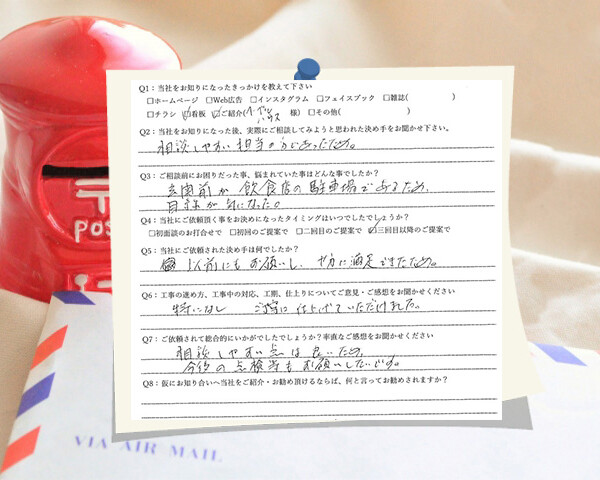 Q1：当社をお知りになったきっかけを教えて下さい
□ホームページ □Web広告 □インスタグラム □フェイスブック □雑誌( )
□チラシ ☑看板 ☑ご紹介( 様) □その他( )
Q2：当社をお知りになった後、実際にご相談してみようと思われた決め手をお聞かせ下さい。
相談しやすい担当の方であったため。
Q3：ご相談前にお困りだった事、悩まれていた事はどんな事でしたか？
玄関前が飲食店の駐車場であるため、
目線が気になった。
Q4：当社にご依頼頂く事をお決めになったタイミングはいつでしたでしょうか？
□初面談のお打合せで □初回のご提案で □二回目のご提案で ☑三回目以降のご提案で
Q5：当社にご依頼された決め手は何でしたか？
以前にもお願いし、十分に満足できたため。
Q6：工事の進め方、工事中の対応、工期、仕上りについてご意見・ご感想をお聞かせください
特になし ご丁寧に仕上げていただけました。
Q7：ご依頼されて総合的にいかがでしたでしょうか？率直なご感想をお聞かせください
相談しやすい点は良いため、
今後の点検等もお願いしたいです。
Q8：仮にお知り合いへ当社をご紹介・お勧め頂けるならば、何と言ってお勧めされますか？
〒
POS
VIA AIR MAIL